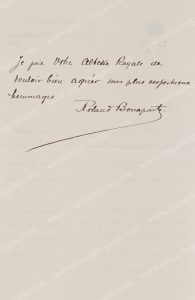 Je prie Votre Altesse Royale de
vouloir bien agréer mes plus respectueux
hommages
Roland Bonaparte